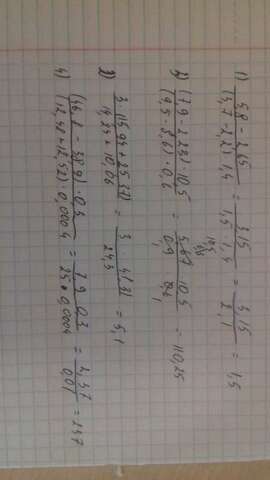 1) 5,8 - 2,65 / (3,7 - 2,2) · 1,4 = 3,15 / 1,5 · 1,4 = 3,15 / 2,1 = 1,5
2) (7,9 - 2,23) · 10,5 / (9,5 - 8,6) · 0,6 = 5,67 · 10,5 / 0,9 · 0,6 = 110,25
3) 3 · (15,94 + 25,37) / 14,24 + 10,06 = 3 · 41,31 / 24,3 = 5,1
4) (46,8 - 38,9) · 0,3 / (12,48 + 12,52) · 0,0004 = 7,9 · 0,3 / 25 · 0,0004 = 2,37 / 0,01 = 237